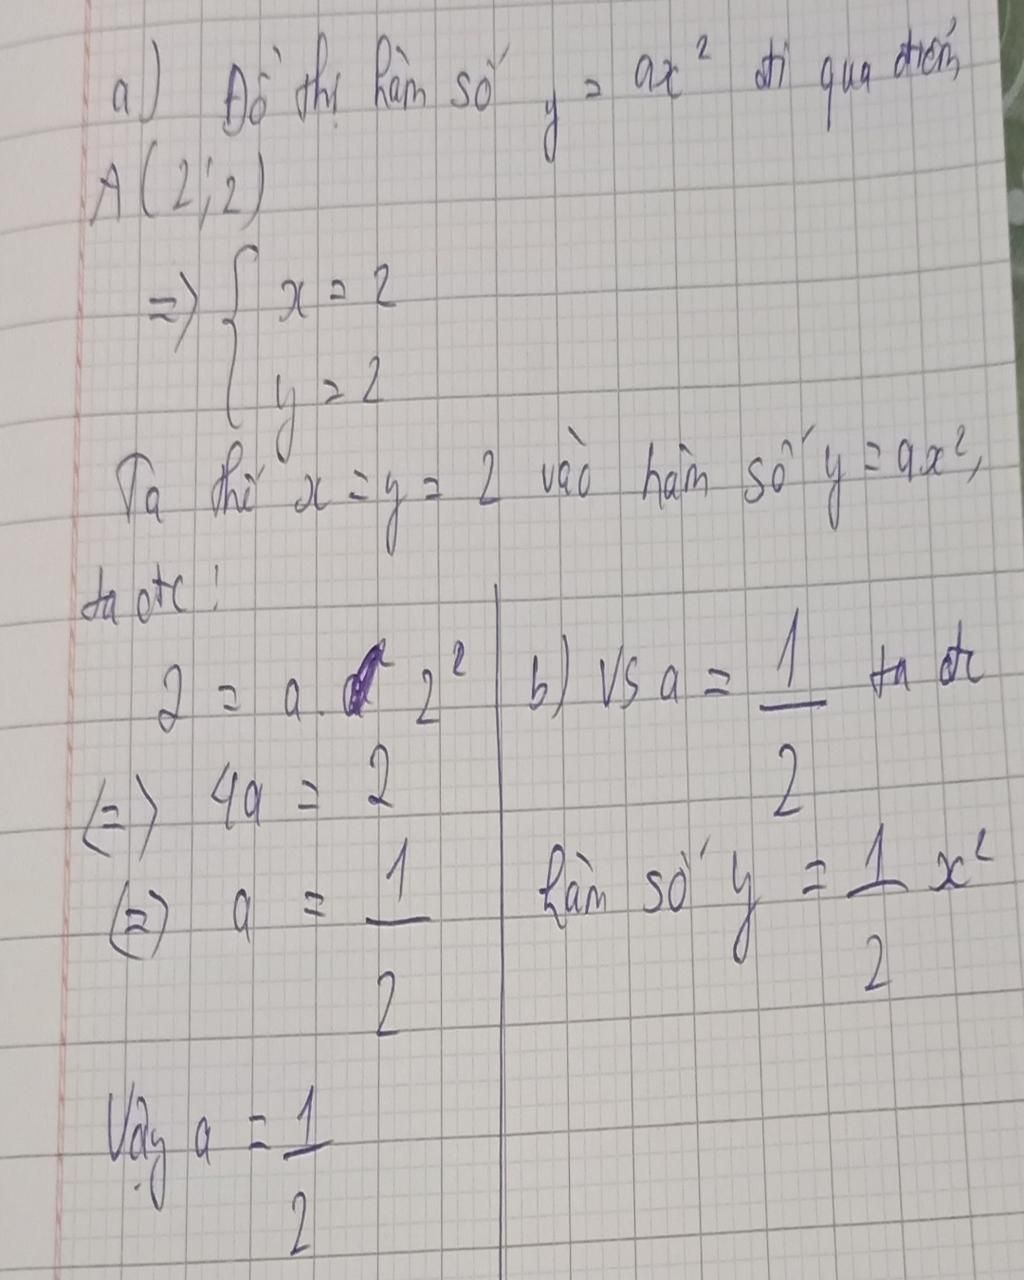 a) Đồ thị hàm số y = ax² đi qua điểm
A(2;2)
=> { x = 2
y = 2
Ta thế x = y = 2 vào hàm số y = ax²,
ta đc:
2 = a. 2²
(=) 4a = 2
(=) a = 1/2
Vậy a = 1/2
b) Vs a = 1/2 ta đc
hàm số y = 1/2 x²